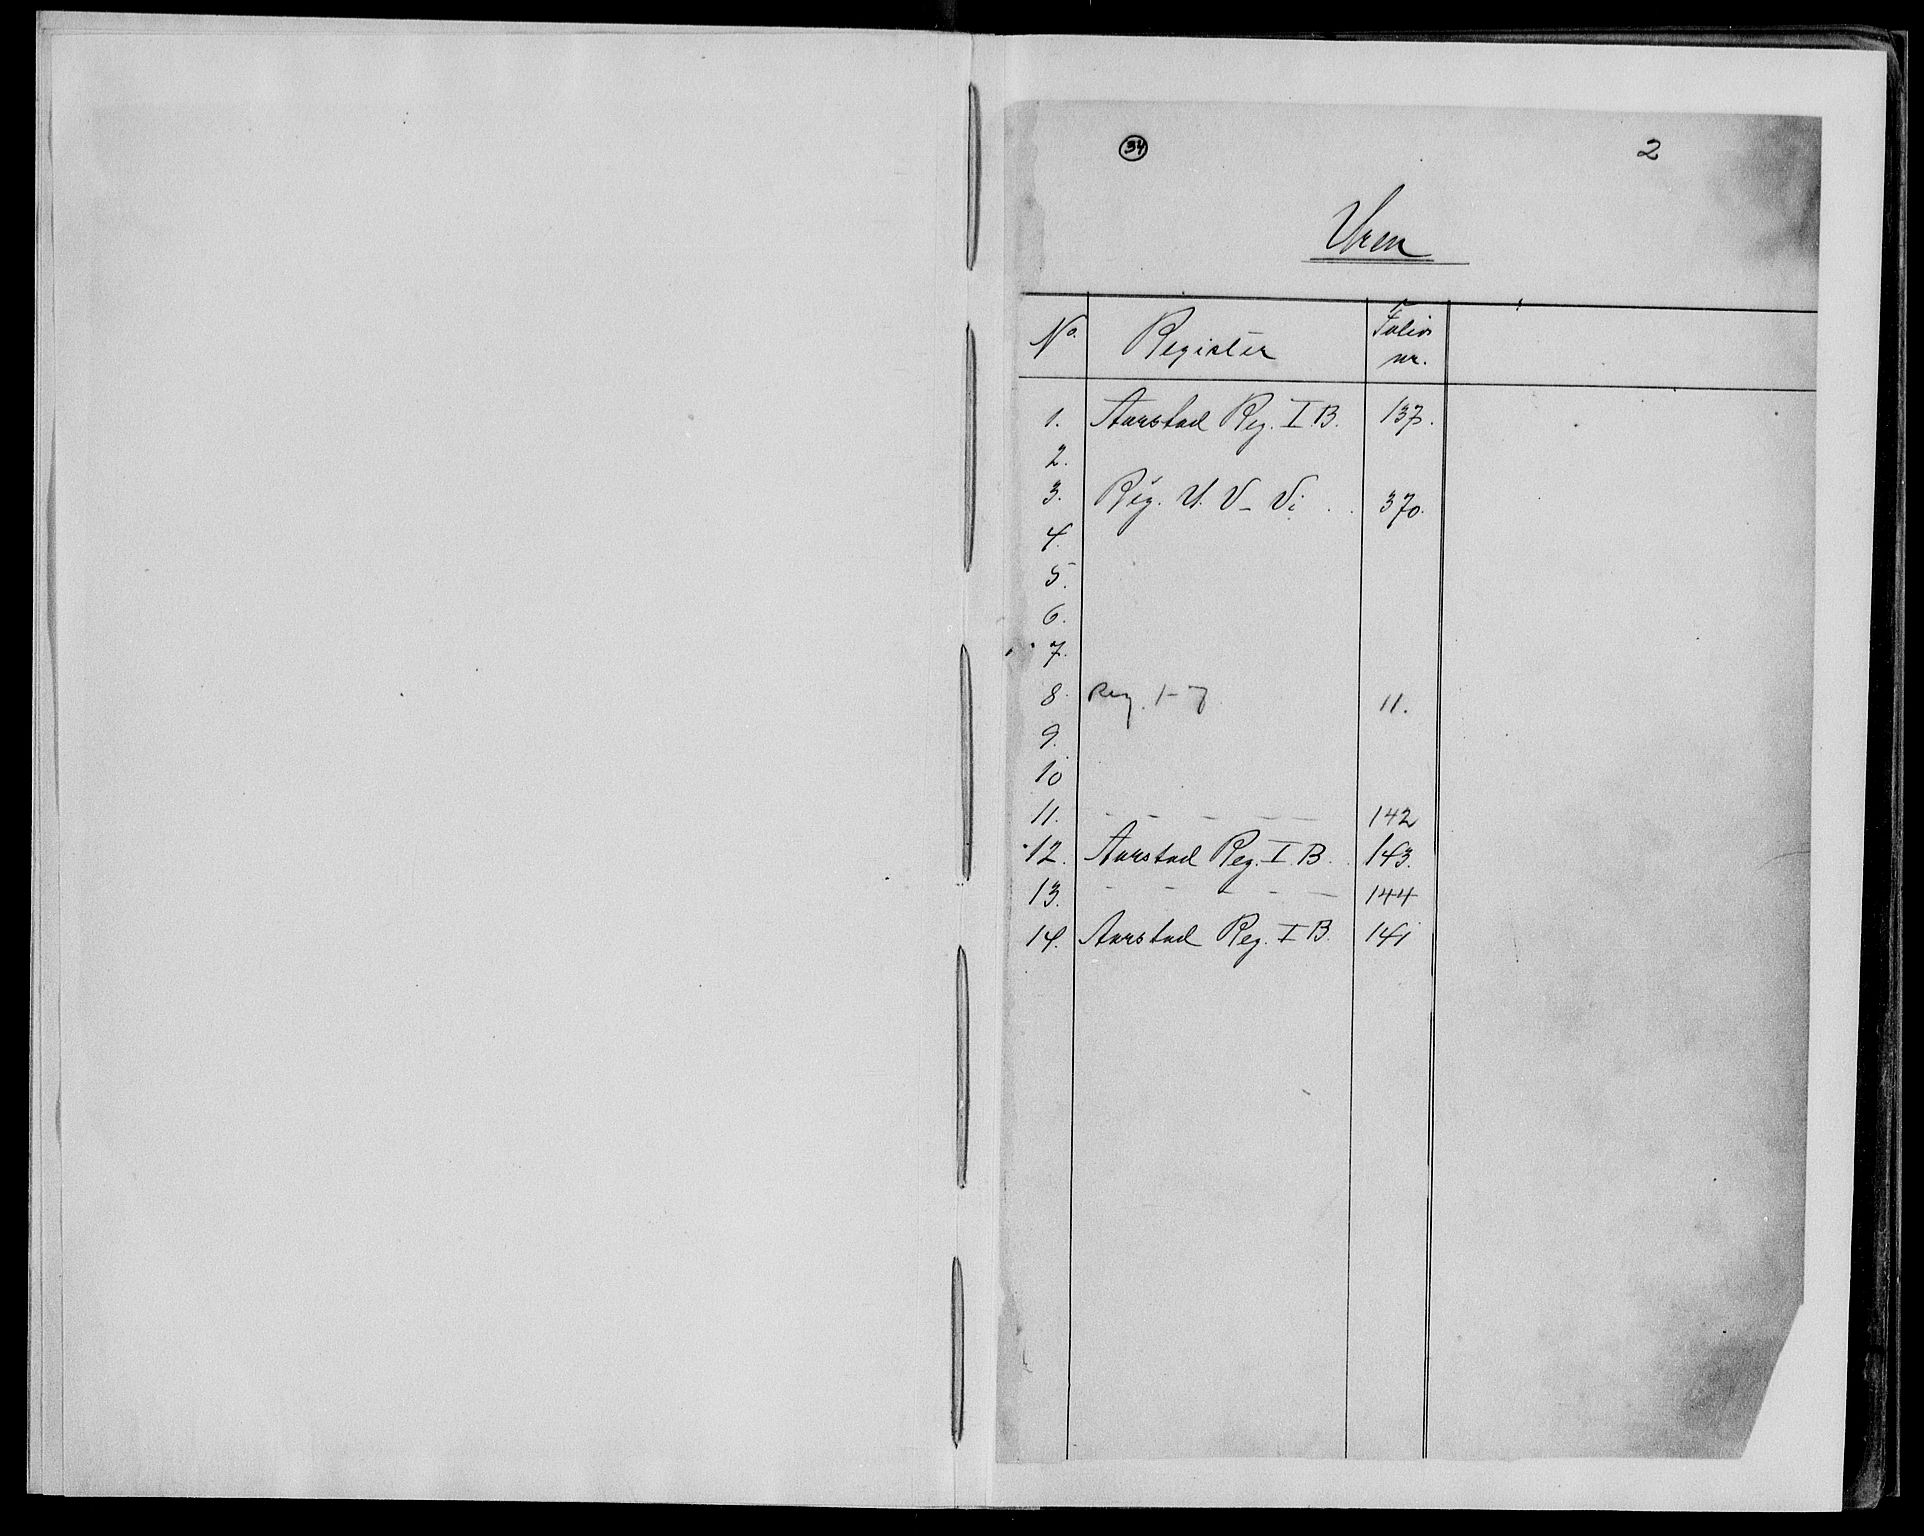 34 2
Uren
No. Register Folio nr.
1. Aarstad Reg. I B. 137.
2.
3. Reg. U. V - Vi . . 370.
4.
5.
6.
7.
8. Reg. 1-7 11.
9.
10
11. - - - - - 142
12. Aarstad Reg. I B. 143.
13. - - - - - 144
14. Aarstad Reg. I B. 141